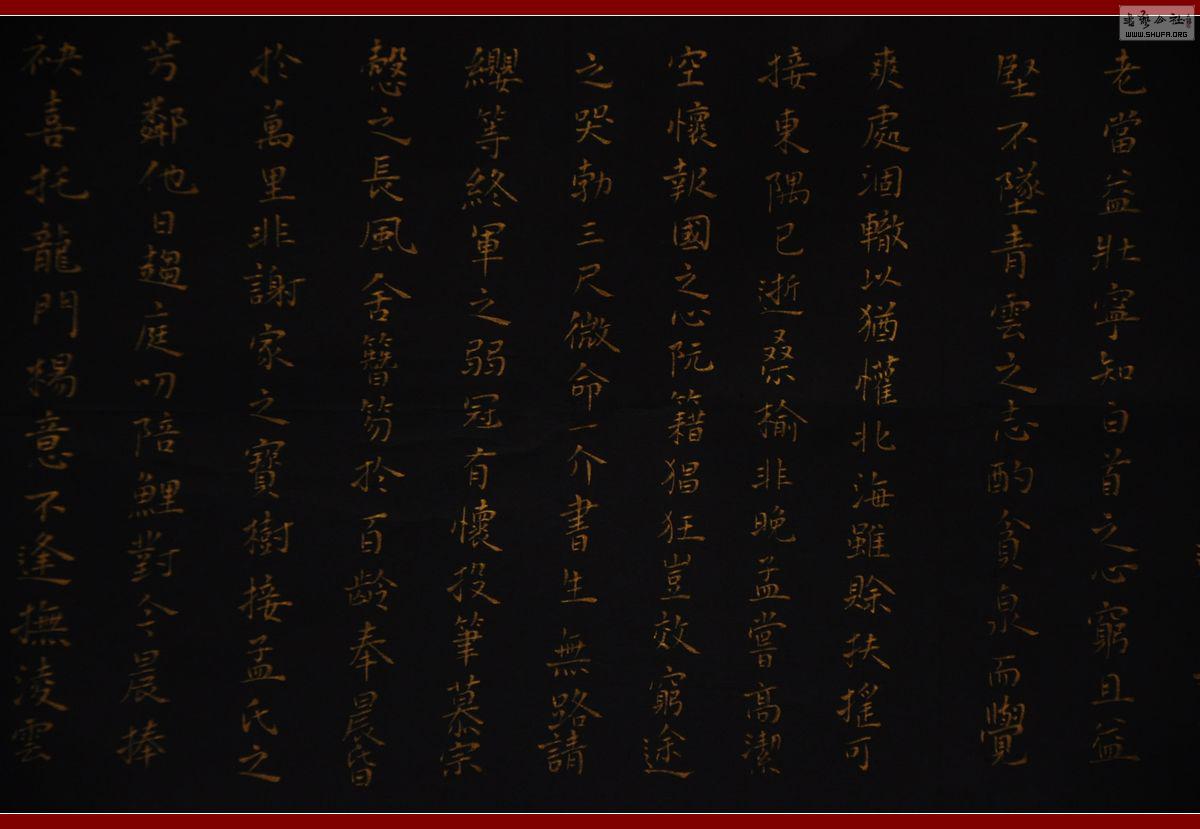 老當益壯寧知白首之心窮且益
堅不墜青雲之志酌貪泉而覺
爽處涸轍以猶懽北海雖賒扶搖可
接東隅已逝桑榆非晚孟嘗高潔
空懷報國之心阮籍猖狂豈效窮途
之哭勃三尺微命一介書生無路請
纓等終軍之弱冠有懷投筆慕宗
慤之長風舍簪笏於百齡奉晨昏
於萬里非謝家之寶樹接孟氏之
芳鄰他日趨庭叨陪鯉對今晨捧
袂喜托龍門楊意不逢撫凌雲
WWW.SHUFA.ORG